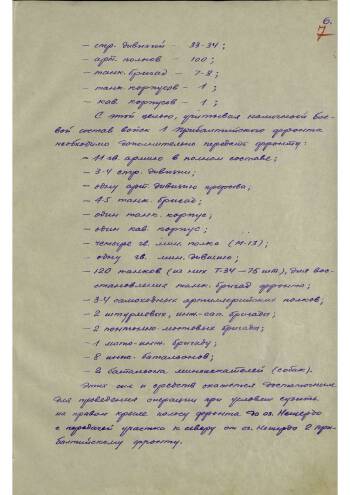 6.
7
– стр. дивизий – 33-34;
– арт. полков – 100;
– танк. бригад – 7-8;
– танк. корпусов – 1;
– кав. корпусов – 1;
С этой целью, учитывая наличный бое-
вой состав войск 1 Прибалтийского фронта
необходимо дополнительно передать фронту:
– 11 гв. армию в полном составе;
– 3-4 стр. дивизии;
– одну арт. дивизию прорыва;
– 4-5 танк. бригад;
– один танк. корпус;
– один кав. корпус;
– четыре гв. мин. полка (М-13);
– одну гв. мин. дивизию;
– 120 танков (из них Т-34 – 75 шт), для вос-
становления танк. бригад фронта;
– 3-4 самоходных артиллерийских полков;
– 2 штурмовых, инж.-сап. бригады;
– 2 понтонно-мостовых бригады;
– 1 мото-инж. бригаду;
– 8 инж. баталионов;
– 2 баталиона миноискателей (собак).
Этих сил и средств окажется достаточным
для проведения операции при условии сузить
на правом крыле полосу фронта до оз. Нещердо
с передачей участка к северу от оз. Нещердо 2 При-
балтийскому фронту.